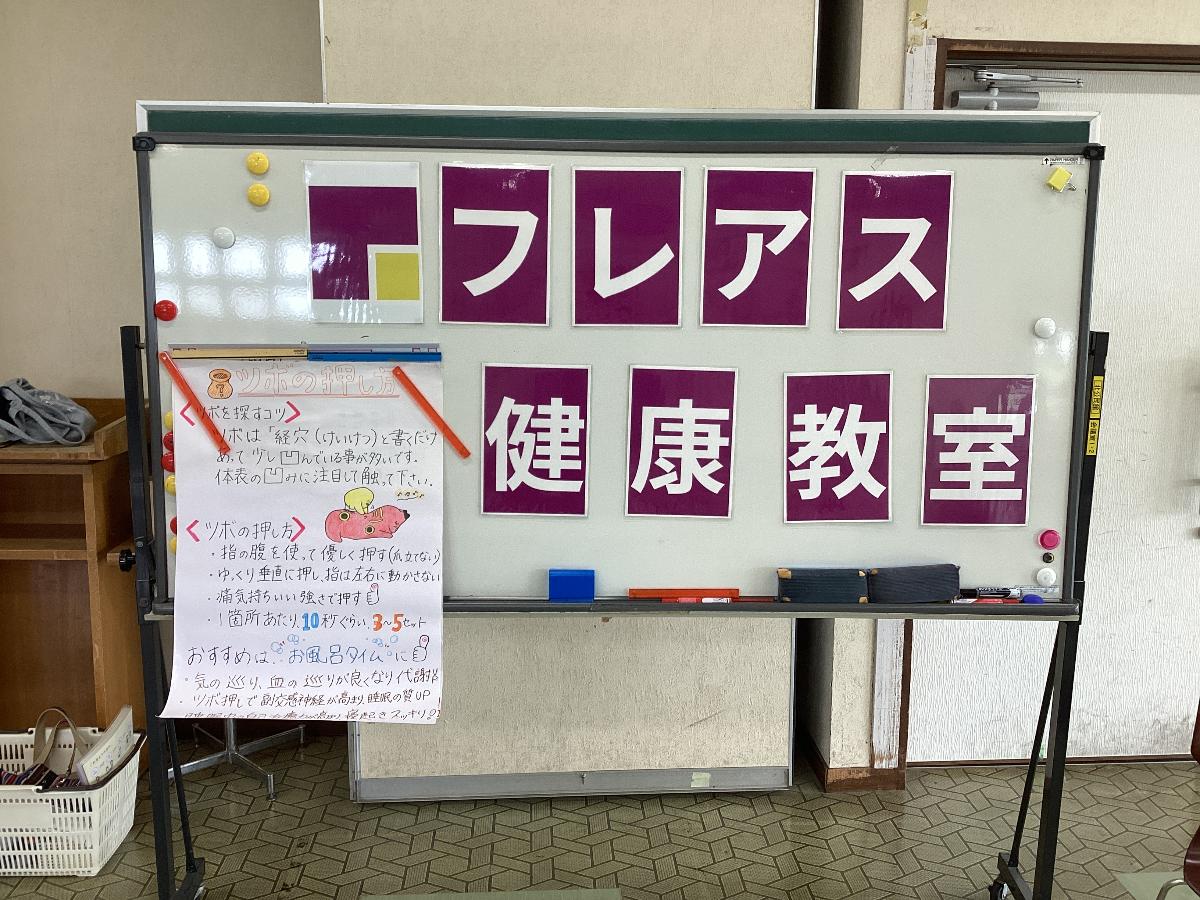 フレアス
健康教室
ツボの押し方
<ツボを探すコツ>
ツボは「経穴(けいけつ)と書くだけ
あって少し凹んでいる事が多いです。
体表の凹みに注目して触って下さい.
<ツボの押し方>
・指の腹を使って優しく押す(爪立てない)
・ゆっくり垂直に押し、指は左右に動かさない
・痛気持ちいい強さで押す
・1箇所あたり、10秒ぐらい、3~5セット
おすすめは、"お風呂タイム"に
・気の巡り、血の巡りが良くなり代謝
・ツボ押しで副交感神経が高まり、睡眠の質UP